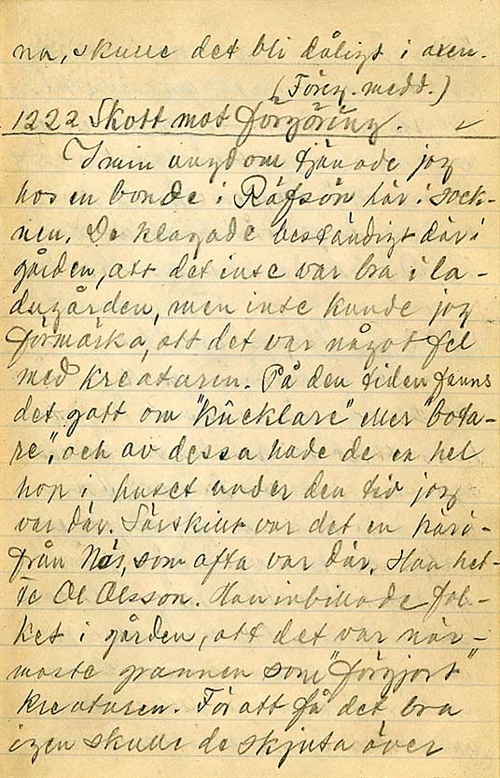 na, skulle det bli dåligt i axen.
(Föreg. medd.)
1222 Skott mot förgöring. ✓
I min ungdom tjänade jag
hos en bonde i Räfsön här i sock-
nen. De klagade beständigt där i
gården, att det inte var bra i la-
dugården, men inte kunde jag
förmärka, att det var något fel
med kreaturen. På den tiden fanns
det gott om "kucklare" eller "bota-
re", och av dessa hade de en hel
hop i huset under den tid jag
var där. Särskilt var det en häri-
från Näs, som ofta var där. Han het-
te Ol Olsson. Han inbillade fol-
ket i gården, att det var när-
maste grannen som "förgjort"
kreaturen. För att få det bra
igen skulle de skjuta över